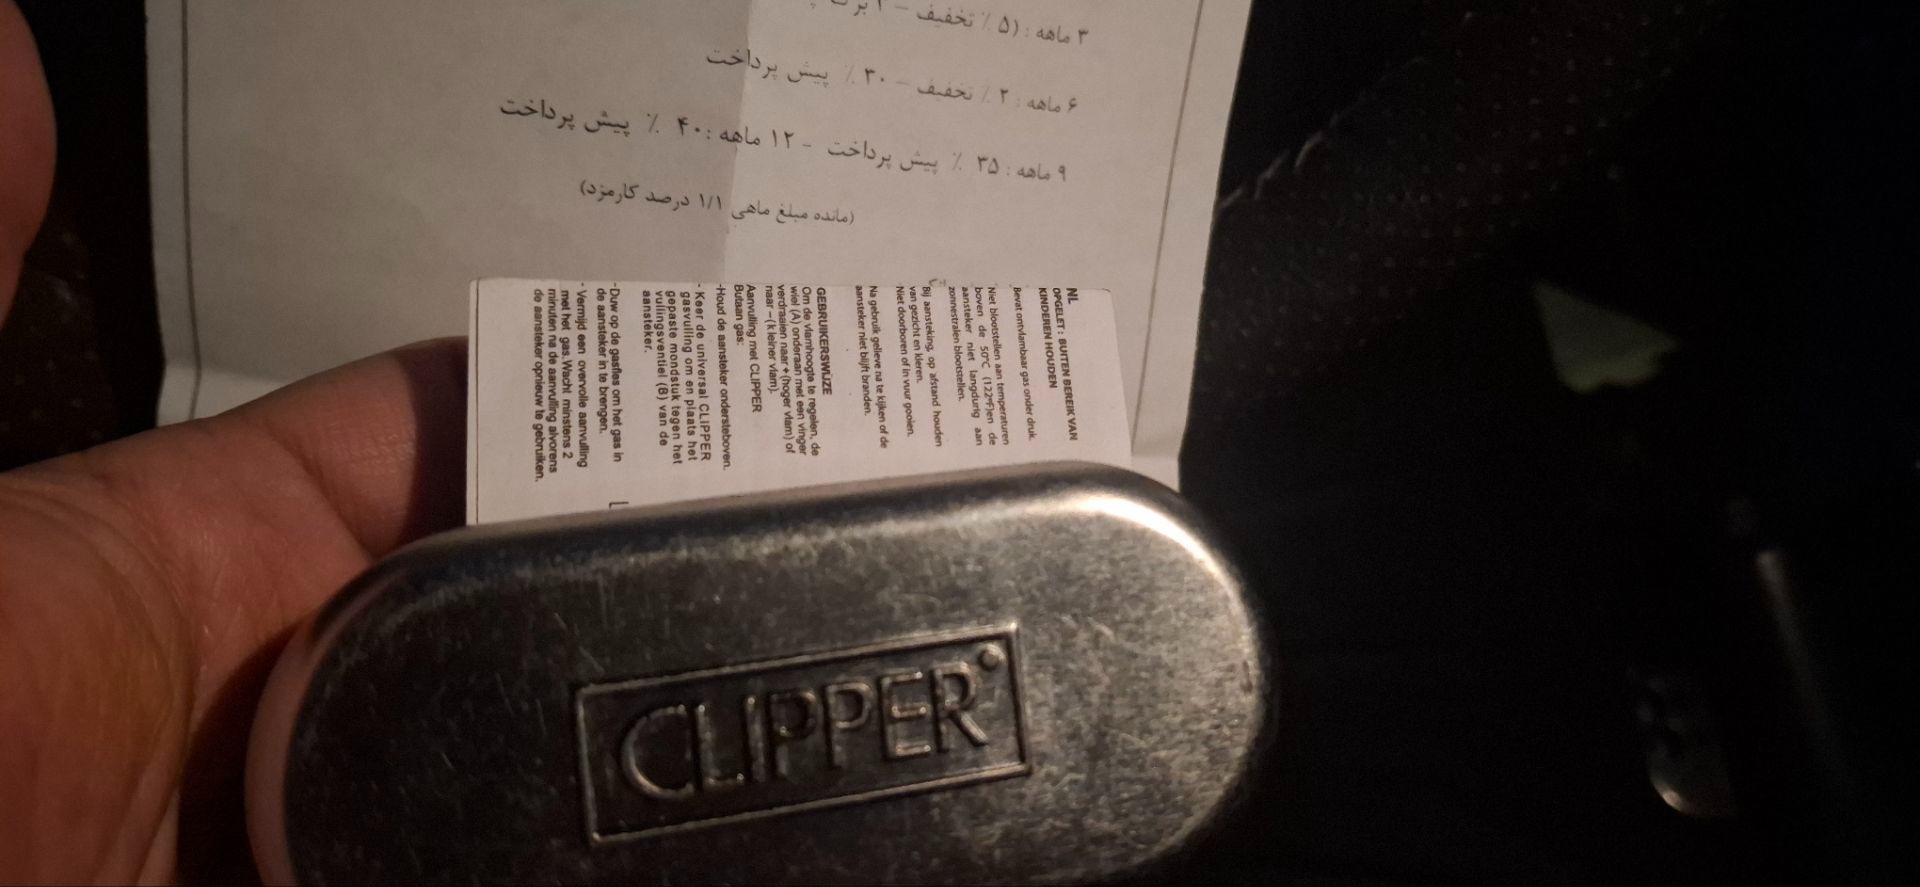 ۳ ماهه : (۵ ٪ تخفیف –
۶ ماهه : ۲ ٪ تخفیف – ۳۰ ٪ پیش پرداخت
۹ ماهه : ۳۵ ٪ پیش پرداخت - ۱۲ ماهه :۴۰ ٪ پیش پرداخت
(مانده مبلغ ماهی ۱/۱ درصد کارمزد)
NL
OPGELET : BUITEN BEREIK VAN
KINDEREN HOUDEN
Bevat ontvlambaar gas onder druk.
Niet blootstellen aan temperaturen
boven de 50ºC (122ºF)en de
aansteker niet langdurig aan
zonnestralen blootstellen.
Bij aansteking, op afstand houden
van gezicht en kleren.
Niet doorboren of in vuur gooien.
Na gebruik gelieve na te kijken of de
aansteker niet blijft branden.
GEBRUIKERSWIJZE
Om de vlamhoogte te regelen, de
wiel (A) onderaan met een vinger
verdraaien naar + (hoger vlam) of
naar – (kleiner vlam).
Aanvulling met CLIPPER
Butaan gas:
-Houd de aansteker ondersteboven.
- Keer de universal CLIPPER
gasvulling om en plaats het
gepaste mondstuk tegen het
vullingsventiel (B) van de
aansteker.
-Duw op de gasfles om het gas in
de aansteker in te brengen.
- Vermijd een overvolle aanvulling
met het gas.Wacht minstens 2
minuten na de aanvulling alvorens
de aansteker opnieuw te gebruiken.
CLIPPER